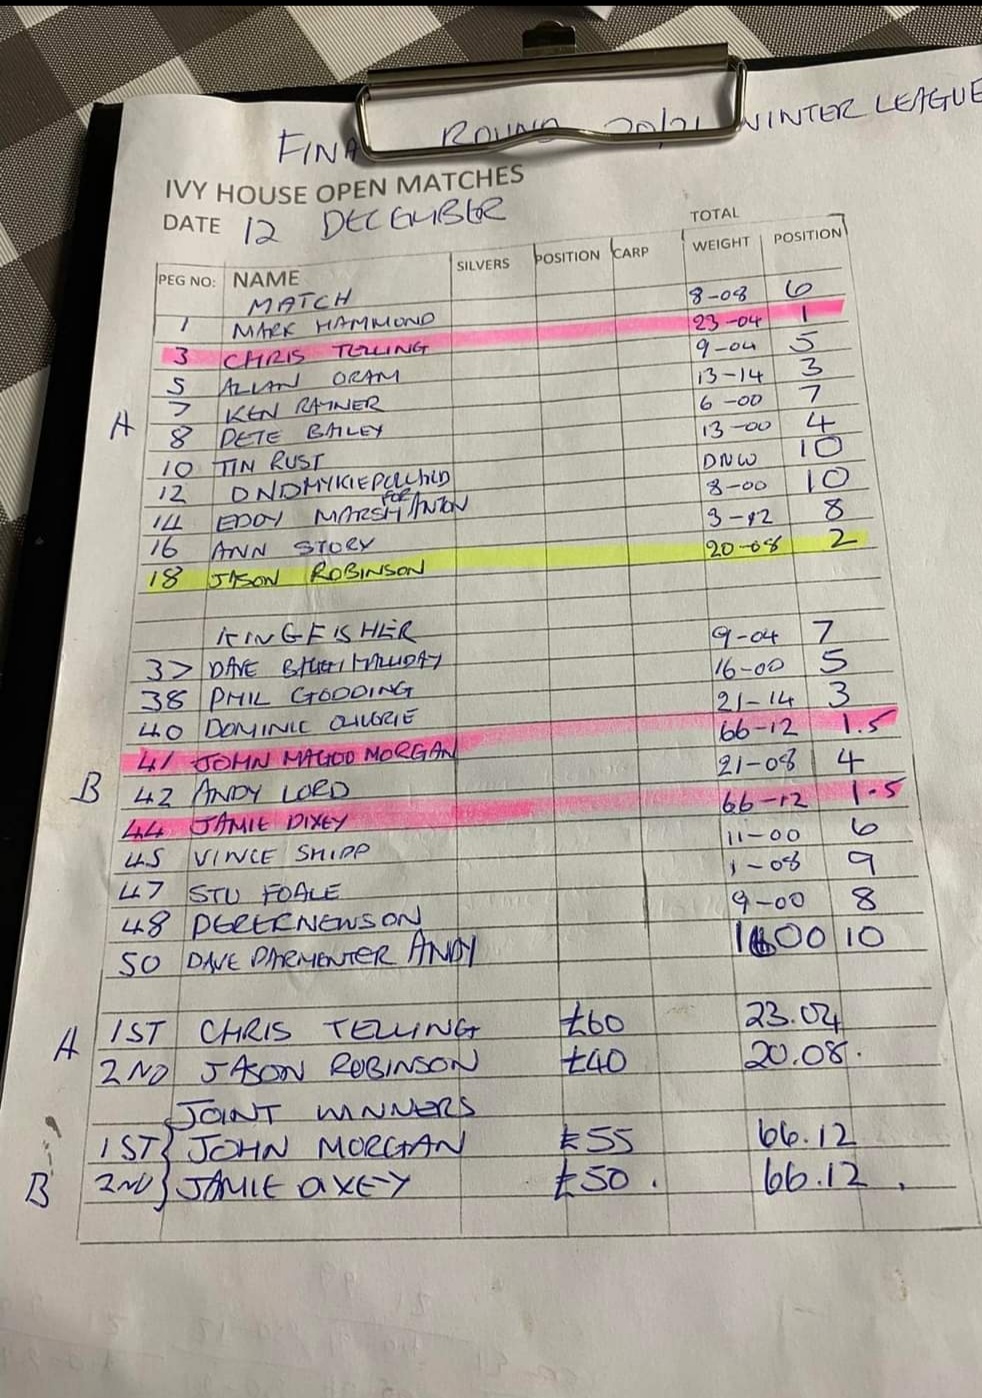 FINAL ROUND 20/21 WINTER LEAGUE
IVY HOUSE OPEN MATCHES
DATE 12 DECEMBER
TOTAL
PEG NO: NAME SILVERS POSITION CARP WEIGHT POSITION
MATCH
1 MARK HAMMOND 8-08 6
3 CHRIS TELLING 23-04 1
5 ALLAN ORAM 9-04 5
7 KEN RAYNER 13-14 3
A
8 PETE BAILEY 6-00 7
10 TIN RUST 13-00 4
12 DND MYKIE DNW 10
FOR
14 EDDY MARSH ANTON 8-00 10
16 ANN STORY 3-12 8
18 JASON ROBINSON 20-08 2
KINGFISHER
37 DAVE HALLIDAY 9-04 7
38 PHIL GODDING 16-00 5
40 DOMINIC 21-14 3
41 JOHN MAGOO MORGAN 66-12 1.5
B
42 ANDY LORD 21-08 4
44 JAMIE DIXEY 66-12 1.5
45 VINCE SHIPP 11-00 6
47 STU FOALE 1-08 9
48 DEREK NEWSON 9-00 8
50 DAVE PARMENTER ANDY 10
A
1ST CHRIS TELLING £60 23.04
2ND JASON ROBINSON £40 20.08.
JOINT WINNERS
1ST } JOHN MORGAN £55 66.12
B
2ND } JAMIE DIXEY £50. 66.12.